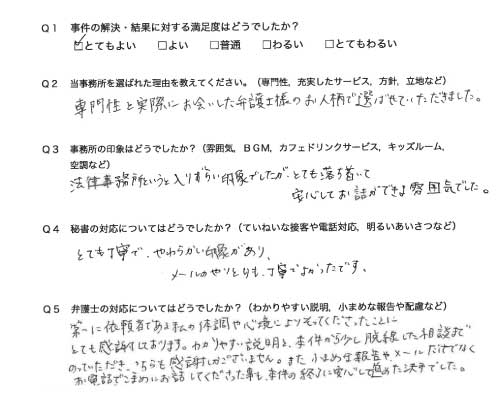 Q1 事件の解決・結果に対する満足度はどうでしたか?
☑とてもよい □よい □普通 □わるい □とてもわるい
Q2 当事務所を選ばれた理由を教えてください。(専門性，充実したサービス，方針，立地など)
専門性と実際にお会いした弁護士様のお人柄で選ばせていただきました。
Q3 事務所の印象はどうでしたか?(雰囲気，BGM，カフェドリンクサービス，キッズルーム，
空調など)
法律事務所というと入りずらい印象でしたが、とても落ち着いて
安心してお話ができる雰囲気でした。
Q4 秘書の対応についてはどうでしたか?(ていねいな接客や電話対応，明るいあいさつなど)
とても丁寧で、やわらかい印象があり、
メールのやりとりも、丁寧でよかったです。
Q5 弁護士の対応についてはどうでしたか?(わかりやすい説明，小まめな報告や配慮など)
第一に依頼者である私の体調や心境によりそってくださったことに
とても感謝しております。わかりやすい説明と、本件から少し脱線した相談まで
のっていただき、こちらも感謝しかございません。また小まめな報告やメールだけでなく
お電話でこまめにお話してくださった事も、本件の終了に安心して進めた決手でした。